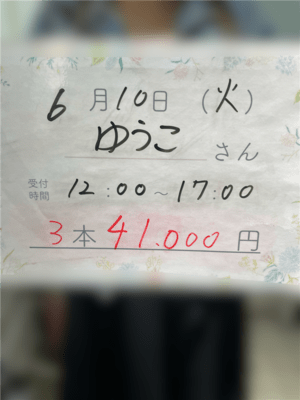 6月10日(火)
ゆうこさん
受付時間 12:00~17:00
3本 41.000円